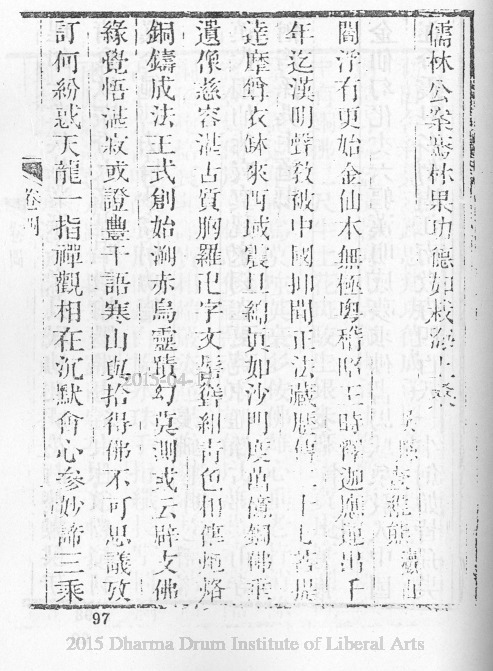 儒林公案叢林果功德如栽海上桑
閻浮有更始金仙本無極粵稽昭王時釋迦應運出千
年迄漢明聲教被中國抑聞正法藏歷傳二十七菩提
達摩尊衣鉢來西域震旦綿真如沙門奠萬億銅佛
遺像慈容湛古質胸羅卍字文髻聳紺古色相傳炮烙
銅鑄成法王式創始溯赤烏靈蹟幻莫測或云辟支佛
緣覺悟湛寂或證豐干語寒山與拾得佛不可思議攷
訂何紛惑天龍一指禪觀相在沉默會心參妙諦三乘
卷四
97
2015-04-1
2015 Dharma Drum Institute of Liberal Arts